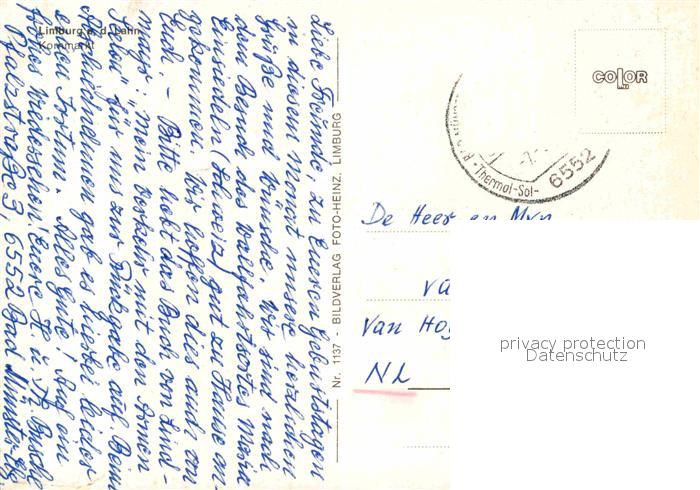 Limburg a. d. Lahn
Kornmarkt
Liebe Freunde, zu Eueren Geburtstagen
in diesem Monat unsere herzlichen
Grüße und Wünsche. Wir sind nach
dem Besuch des Wallfahrtsortes Maria
Einsiedeln (Schweiz) gut zu Hause an-
gekommen. Wir hoffen dies auch von
Euch. - Bitte hebt das Buch von Lind-
mayr: "Mein Verkehr mit den Armen
Seelen" für uns zur Rückgabe auf. Beim
Abschiednehmen gab es hierbei leider
einen Irrtum. Alles Gute! Auf ein
frohes Wiedersehen! Euere H. u. Th.
Pfalzstraße 3, 6552 Bad Münster
Nr. 1137 - BILDVERLAG FOTO-HEINZ, LIMBURG
COLOR
-Thermal-Sol-
6552
De Heer en Mvr.
va
Van Ho
NL
privacy protection
Datenschutz